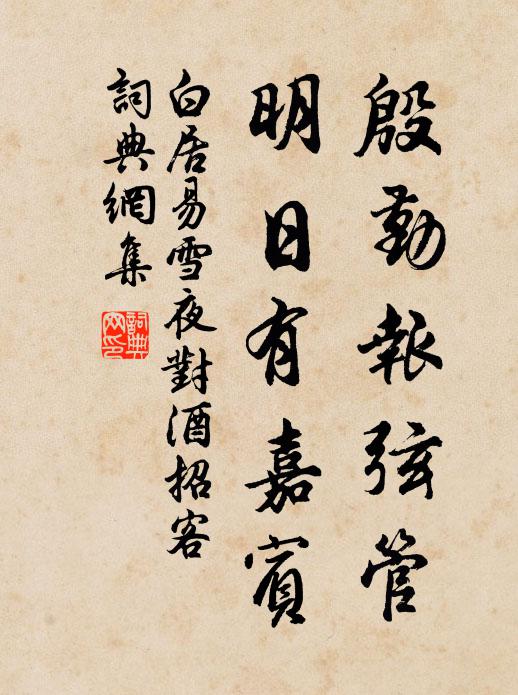 殷勤報弦管
明日有嘉賓
白居易雪夜對酒招客
詞典網集
詞典网印